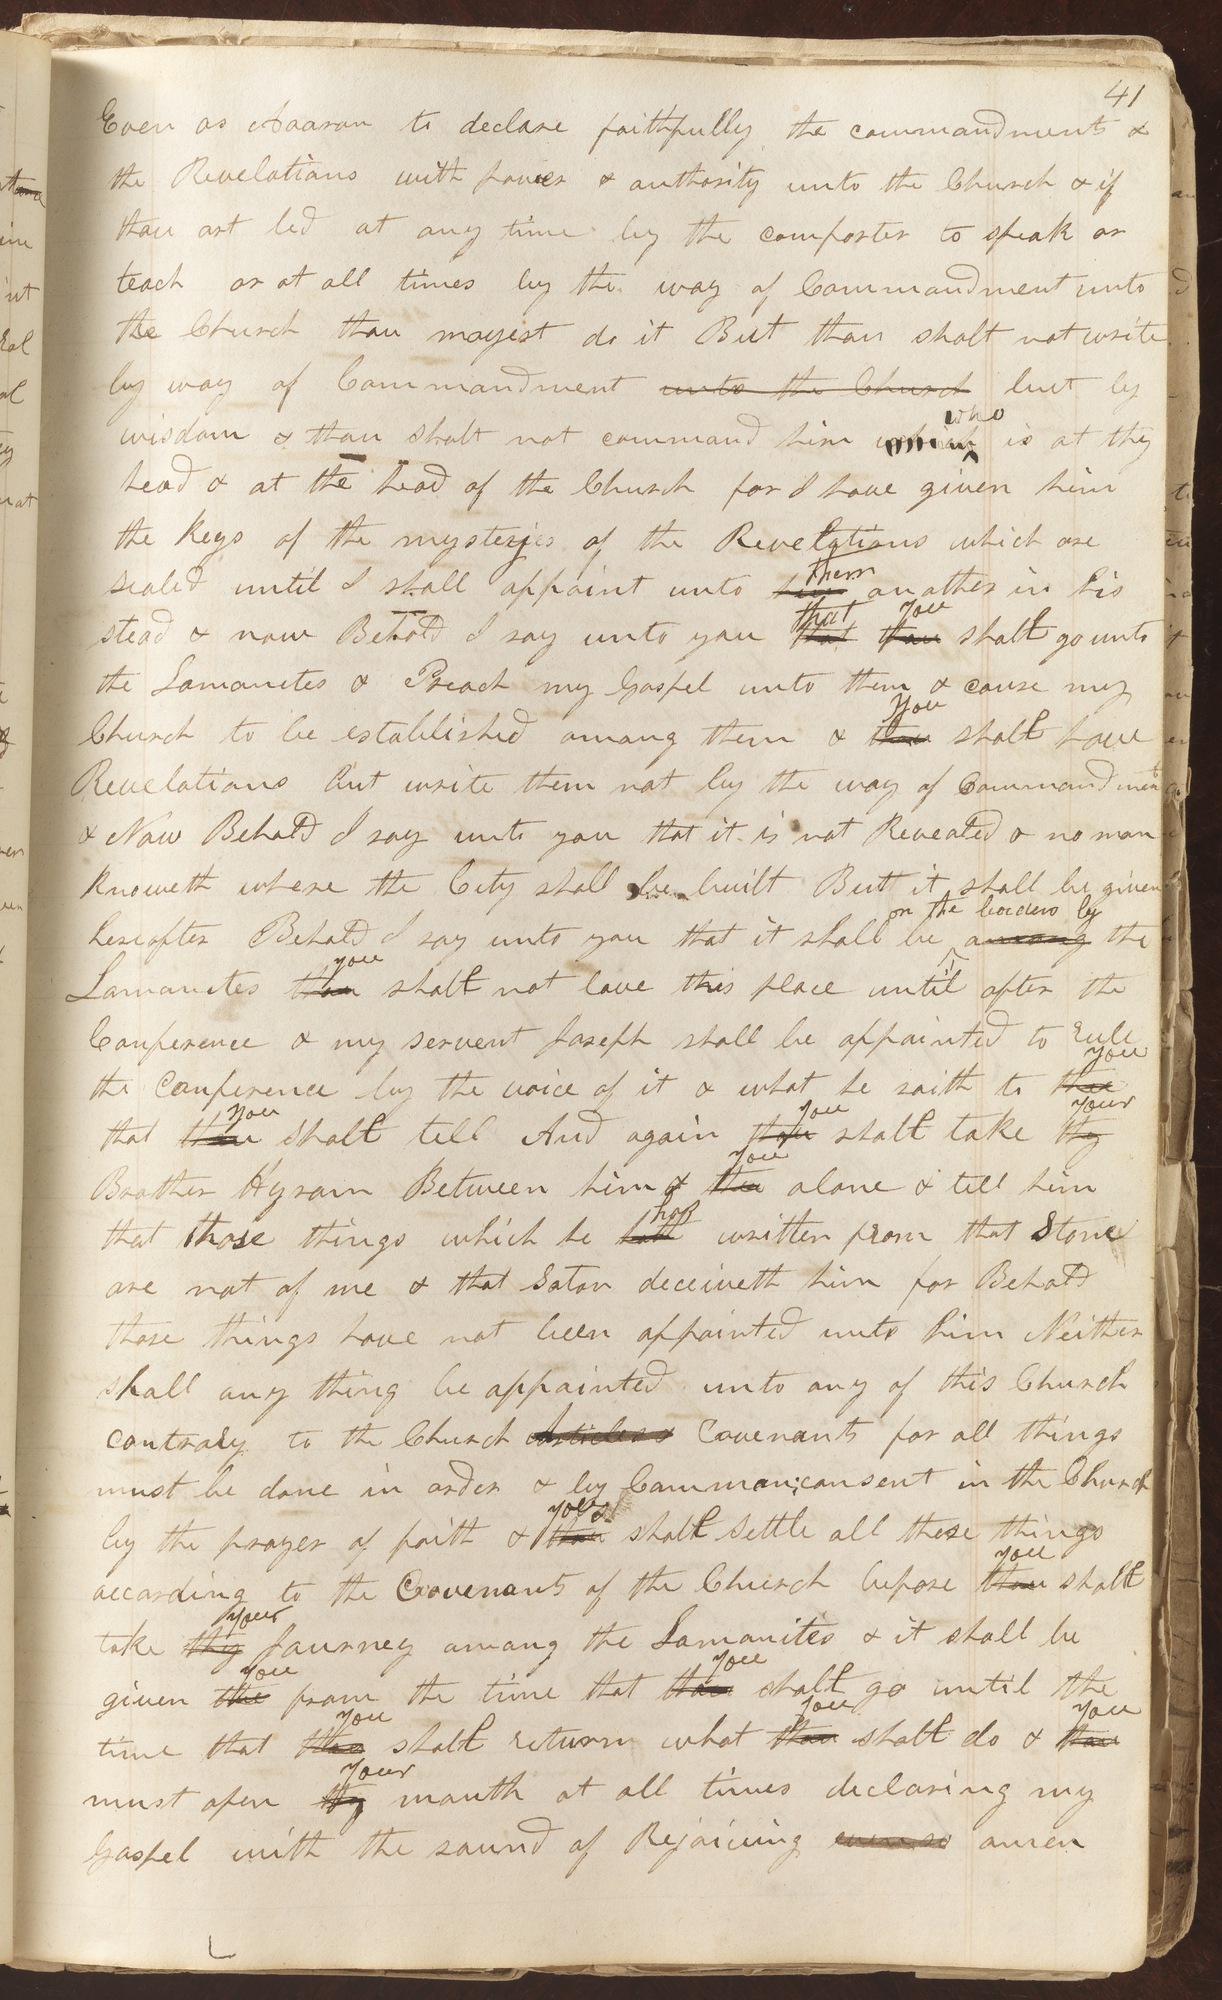 41
Even as Aaaron to declare faithfully the commandments &
the Revelations with power & authority unto the Church & if
thou art led at any time by the comforter to speak or
teach or at all times by the way of Commandment unto
the Church thou mayest do it But thou shalt not write
by way of Commandment unto the Church but by
who
wisdom & thou shalt not command him which is at thy
head & at the head of the Church for I have given him
the keys of the mysteries of the Revelations which are
them
sealed until I shall appoint unto him another in his
that you
stead & now Behold I say unto you that thou shalt go unto
the Lamanites & Preach my Gospel unto them & cause my
you
Church to be established among them & thou shalt have
Revelations but write them not by the way of Commandment
& Now Behold I say unto you that it is not Revealed & no man
knoweth where the City shall be built But it shall be given
on the borders by
hereafter Behold I say unto you that it shall be among the
you
Lamanites thou shalt not leave this place until after the
Conference & my servent Joseph shall be appointed to rule
you
the Conference by the voice of it & what he saith to thee
you you your
that thou shalt tell And again thou shalt take thy
you
Brother Hyram Between him & thee alone & tell him
has
that those things which he hath written from that Stone
are not of me & that Satan deceiveth him for Behold
those things have not been appointed unto him Neither
shall any thing be appointed unto any of this Church
contrary to the Church Articles & Covenants for all things
must be done in order & by Common consent in the Church
you
by the prayer of faith & thou shalt settle all these things
you
according to the Covenants of the Church before thou shalt
your
take thy Journey among the Lamanites & it shall be
you you
given thee from the time that thou shalt go until the
you you you
time that thou shalt return what thou shalt do & thou
your
must open thy mouth at all times declaring my
Gospel with the sound of Rejoicing even so amen